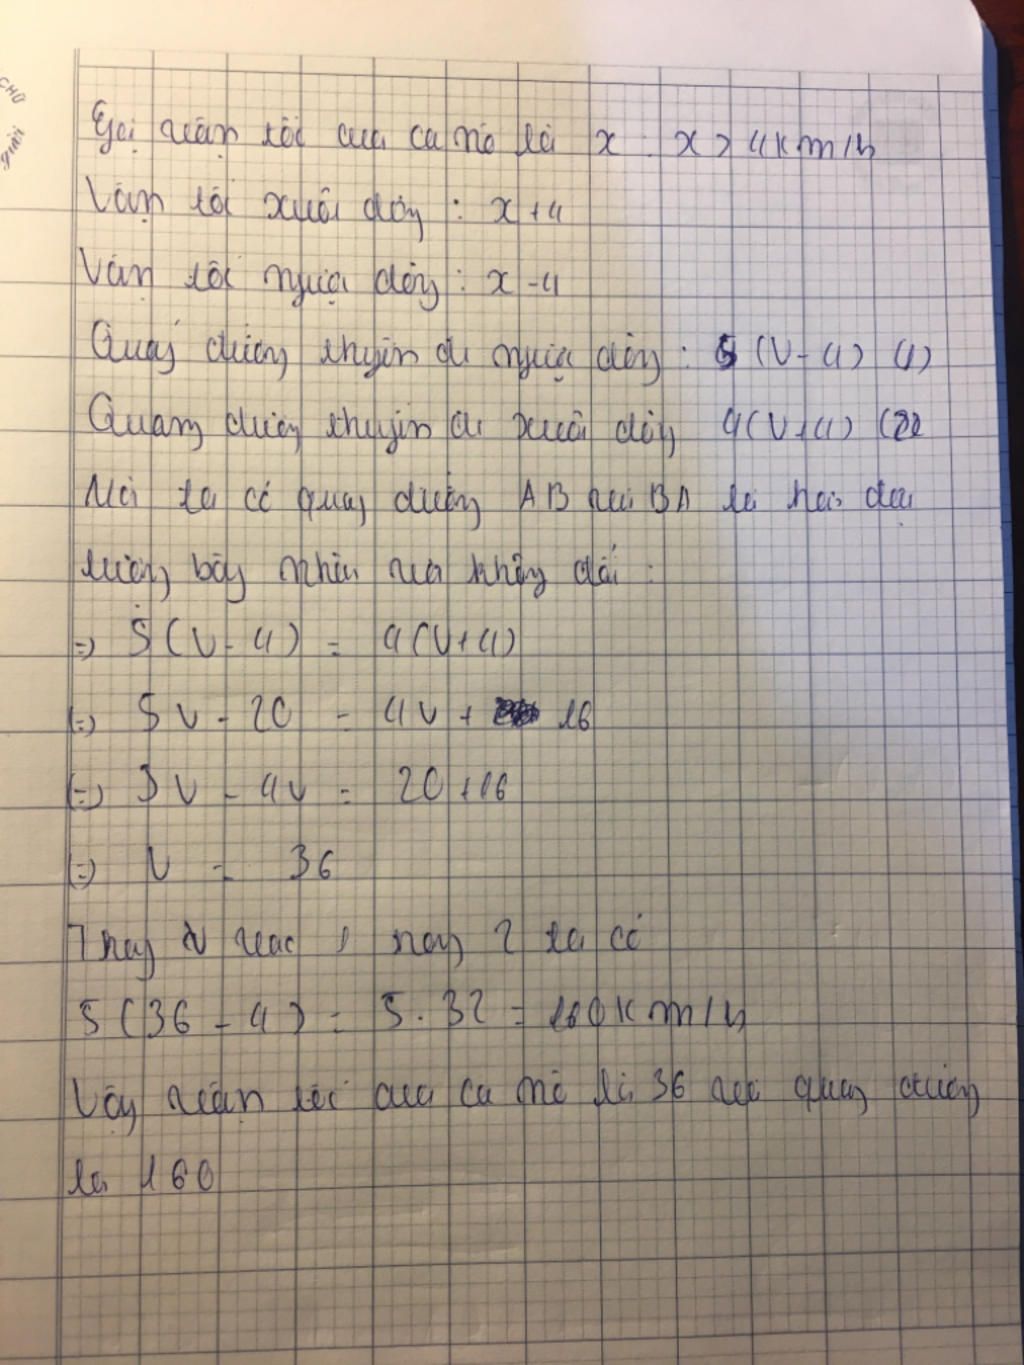 CHỮ
giải
Gọi vận tốc của ca nô là x : x > 4km/h
Vận tốc xuôi dòng : x + 4
Vận tốc ngược dòng : x - 4
Quãng đường thuyền đi ngược dòng : 5 (V - 4) (1)
Quãng đường thuyền đi xuôi dòng 4(V + 4) (2)
Mà ta có quãng đường AB và BA là hai đại
lượng bây nhiêu và không đổi :
=> 5(V - 4) = 4(V + 4)
(=) 5V - 20 = 4V + 16
(=) 5V - 4V = 20 + 16
(=) V = 36
Thay V vào 1 hay 2 ta có
5(36 - 4) = 5.32 = 160km/h
Vậy vận tốc của ca nô là 36 và quãng đường
là 160